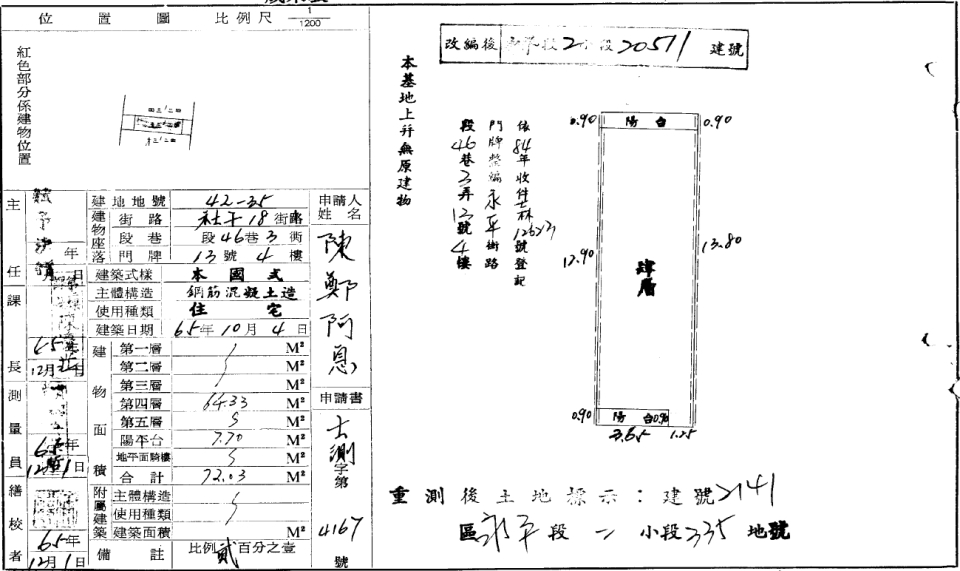 位置圖 比例尺 1/1200
紅色部分係建物位置
改編後 段2小段20511 建號
本基地上并無原建物
依84年收件士林 號登記
門牌整編永平街路
段46巷3弄13號4樓
0.90 陽台 0.90
12.90
13.80
肆層
0.90 陽台 0.90
3.65 1.25
重測後土地標示：建號2141
區 段二小段335地號
主任課長
年
日
65
12月 日
測量員
65年
12月1日
繕校者
65年
12月1日
建物座落
建地地號 42-35
街路 社子18街路
段巷 段46巷3衖
門牌 13號4樓
建築式樣 本國式
主體構造 鋼筋混凝土造
使用種類 住宅
建築日期 65年10月4日
建物面積
第一層 M²
第二層 M²
第三層 M²
第四層 64.33 M²
第五層 M²
陽平台 7.70 M²
地平面騎樓 M²
合計 72.03 M²
附屬建築
主體構造
使用種類
建築面積 M²
備註 比例貳百分之壹
申請人姓名
陳鄭阿恩
申請書
士測字第
4167
號